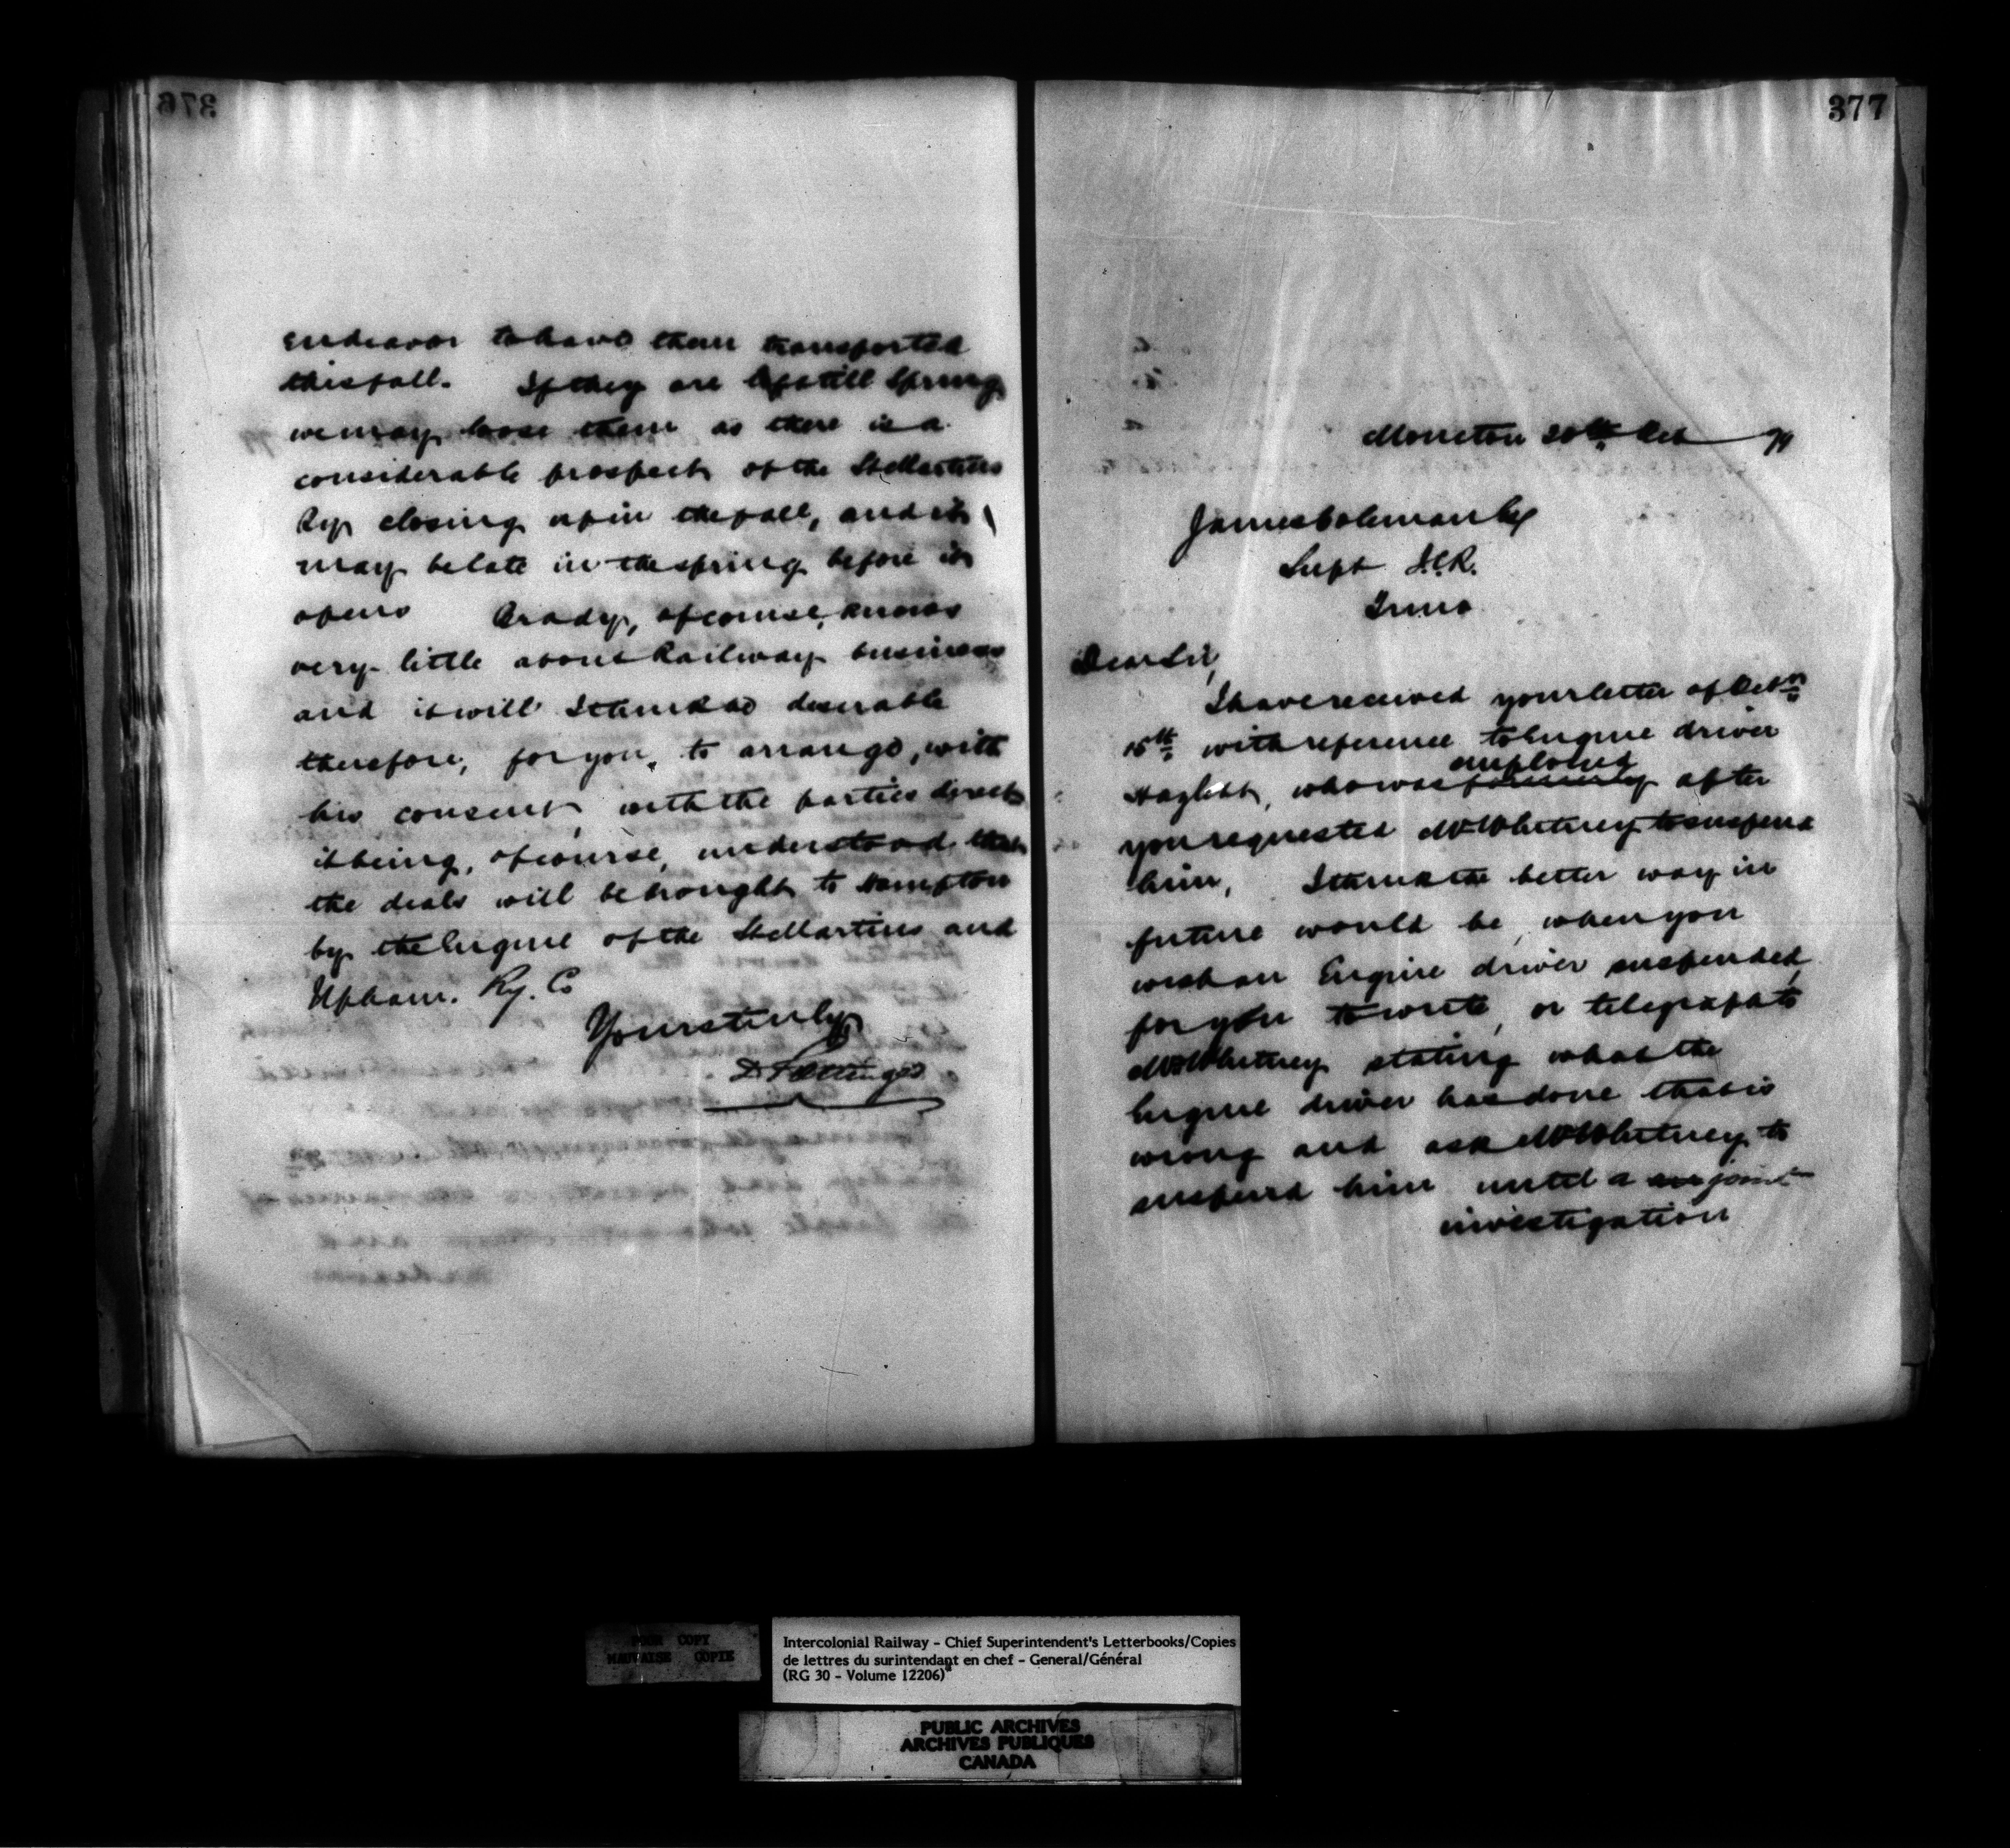 376
endeavor to have them transported
this fall. If they are left till Spring
we may loose them as there is a
considerable prospect of the St Martins
Ry closing up in the fall, and it
may be late in the spring before it
opens Brady, of course, knows
very little about Railway business
and it will I think be desirable
therefore, for you, to arrange, with
his consent, with the parties direct
it being, of course, understood that
the deals will be brought to Hampton
by the Engine of the St Martins and
Upham. Ry. Co
Yours truly
D Pottinger
377
Moncton 20th Oct 79
James Coleman Esq
Supt I.C.R.
Truro
Dear Sir,
I have received your letter of Octr
15th with reference to Engine driver
employed
who was formerly after
you requested Mr Whitney to suspend
him, I think the better way in
future would be, when you
wish an Engine driver suspended,
for you to write, or telegraph to
Mr Whitney stating what the
Engine driver has done that is
wrong and ask Mr Whitney to
suspend him until a joint
investigation
POOR COPY
MAUVAISE COPIE
Intercolonial Railway - Chief Superintendent's Letterbooks/Copies
de lettres du surintendant en chef - General/Général
(RG 30 - Volume 12206)
PUBLIC ARCHIVES
ARCHIVES PUBLIQUES
CANADA